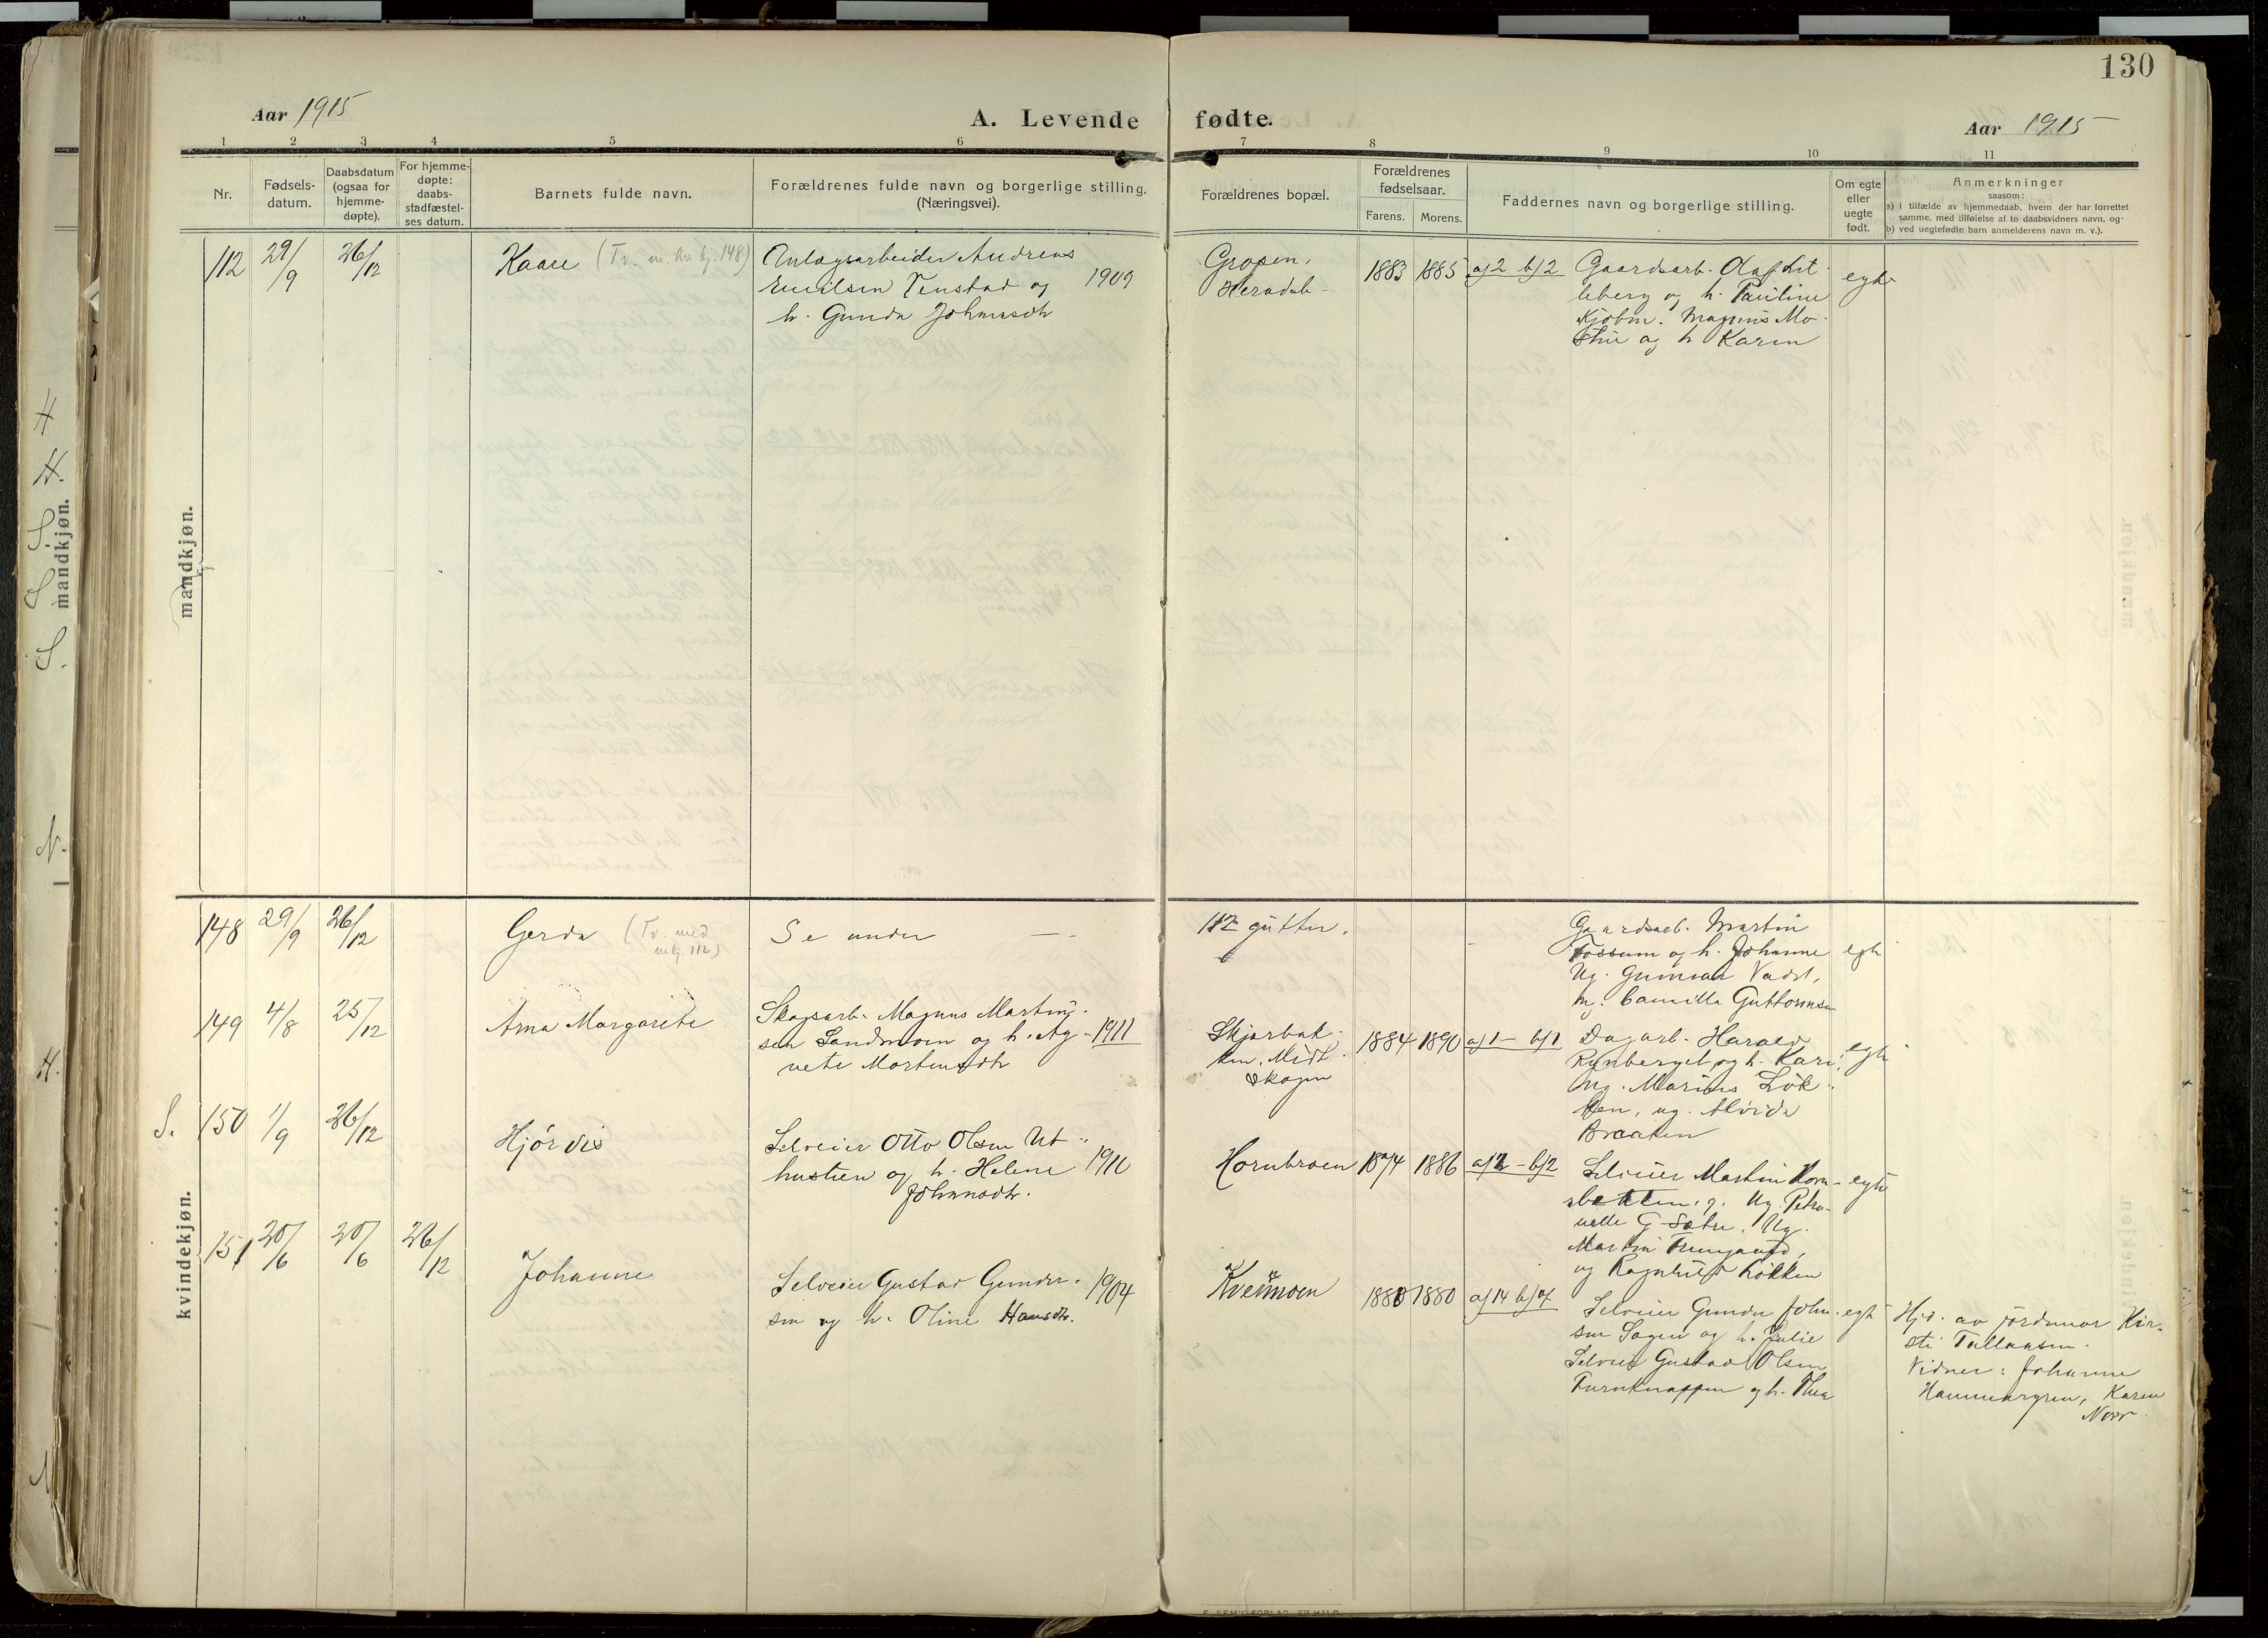 130
Aar 1915
A. Levende fødte.
Aar 1915
1 2 3 4 5 6 7 8 9 10 11
Nr.
Fødsels-
datum.
Daabsdatum
(ogsaa for
hjemme-
døpte).
For hjemme-
døpte:
daabs-
stadfæstel-
ses datum.
Barnets fulde navn.
Forældrenes fulde navn og borgerlige stilling.
(Næringsvei).
Forældrenes bopæl.
Forældrenes
fødselsaar.
Farens. Morens.
Faddernes navn og borgerlige stilling.
Om egte
eller
uegte
født.
Anmerkninger
saasom:
a) i tilfælde av hjemmedaab, hvem der har forrettet
samme, med tilføielse af to daabsvidners navn, og
b) ved uegtefødte barn anmelderens navn m. v.).
mandkjøn.
mandkjøn.
112 29/9 26/12
Kaare (Tv. m. kv kj. 148)
Anlægsarbeider Andreas
Emilsen Tenstad og 1909
h. Gunda Johansdtr
Gropen,
Heradsb.
1883 1885 a/2 b/2
Gaardsarb. Olaf Lit
leberg og h. Pauline
Kjøbm. Magnus Mo
og h Karen
egte
148 29/9 26/12
Gerda (Tv. med
mkj. 112)
Se under
112 gutter.
Gaardsarb. Martin
Fossum og h. Johanne
Ug. Gunnar
m. Camilla Guttormsen
egte
149 4/8 25/12
Arna Margarete
Skogsarb. Magnus Martin-
sen Sandmoen og h. Ag- 1911
nete Mortensdtr
Skjærbak-
ken, Midt
skogen
1884 1890 a/1 - b/1
Dagarb. Harald
Rynberget og h. Kari
Ug. Marius Løk-
ken, ug. Alvida
Braaten
egte
S. 150 1/9 26/12
Hjørdis
Selveier Otto Olsen Ut-
hustien og h. Helene 1910
Johansdtr.
Hornbroen
1886 a/2 - b/2
Selveier Martin Horn-
Ug. Petro-
nelle G Sætre. Ug.
Martin
og Ragnhild Løkken
egte
151 20/6 20/6 26/12
Johanne
Selveier Gustav Gunder- 1904
sen og h. Oline Hansdtr.
Kvermoen
1880
Selveier Gunder John-
sen Sagen og h. Julie
Selveier Gustav Olsen
Furuknappen og h. Thea
egte
Hjd. av jordmor Kir-
sti Tallaksen.
Vidner: Johanne
Hammargren, Karen
kvindekjøn.